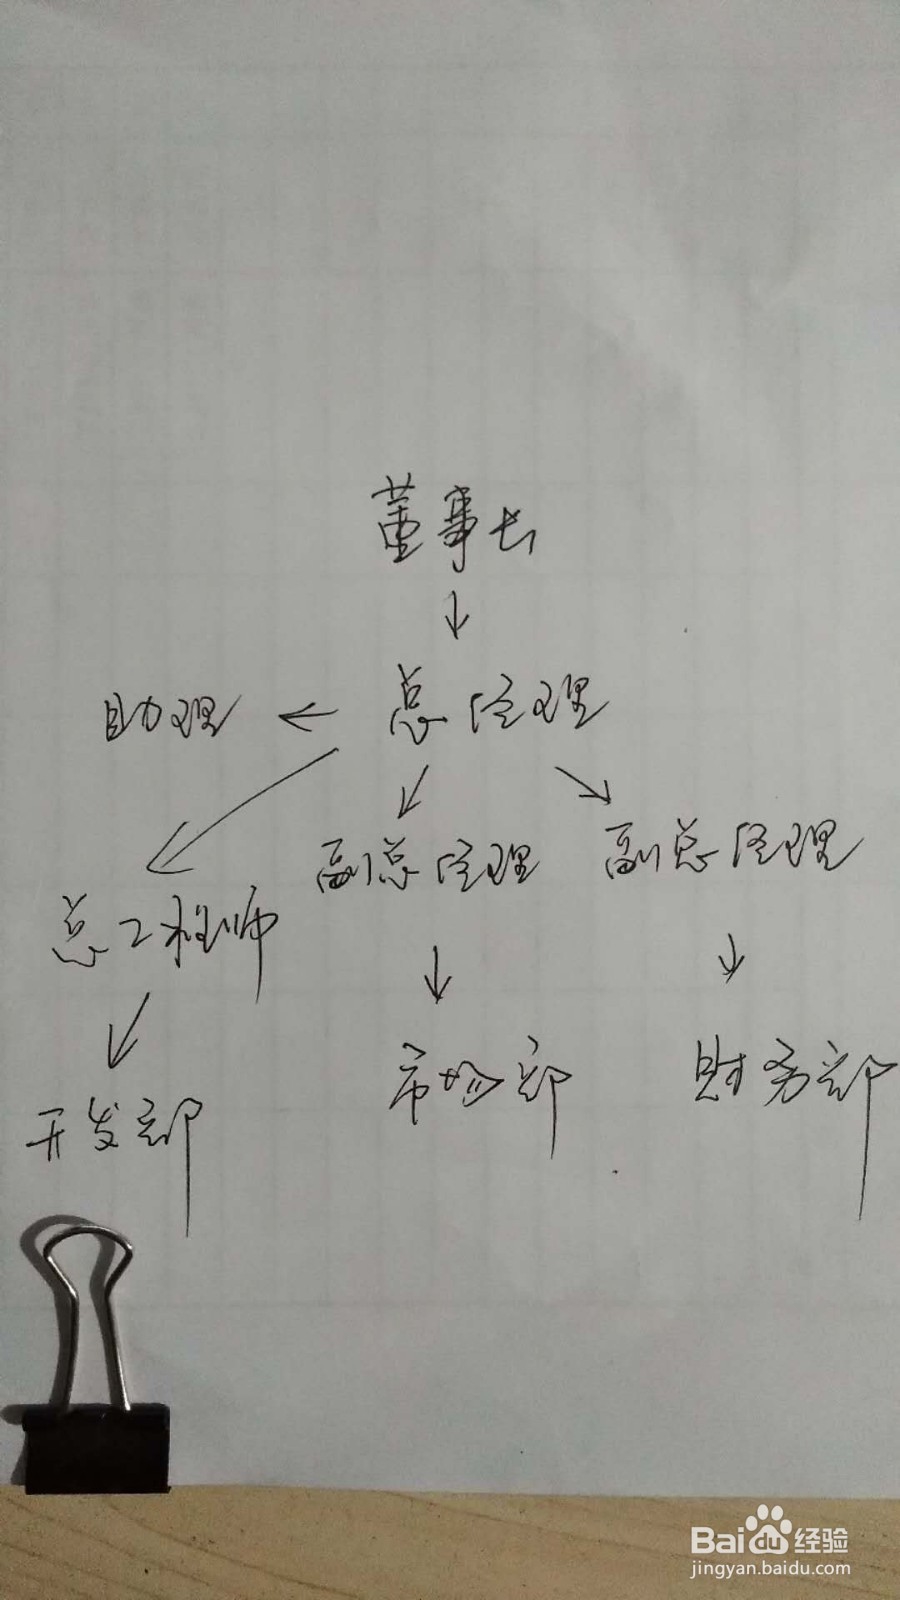 董事长
助理 总经理
副总经理 副总经理
总工程师
市场部 财务部
开发部
Baidu经验
jingyan.baidu.com